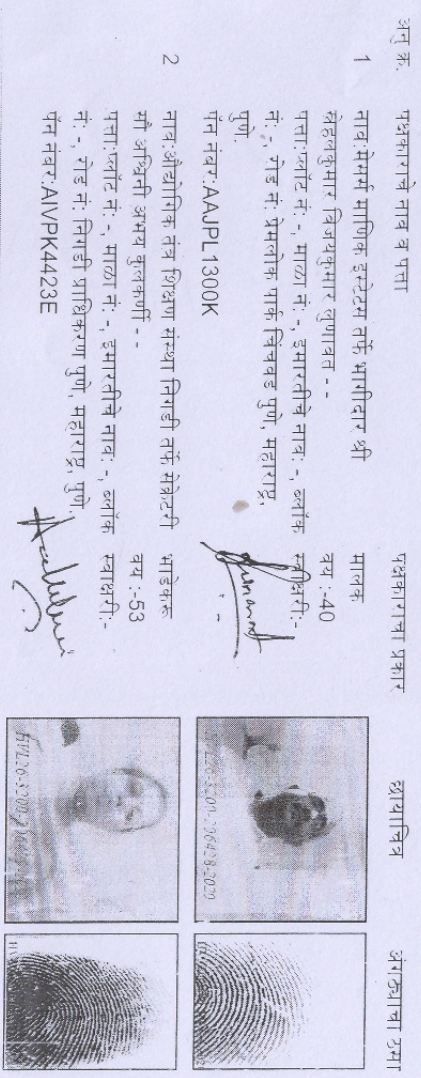 अनु क्र. पक्षकाराचे नाव व पत्ता पक्षकाराचा प्रकार छायाचित्र अंगठ्याचा ठसा
1 नाव:मेसर्स माणिक इस्टेटस तर्फे भागीदार श्री मालक
स्नेहलकुमार विजयकुमार लुणावत - - वय :-40
पत्ता:प्लॉट नं: -, माळा नं: -, इमारतीचे नाव: -, ब्लॉक स्वाक्षरी:-
नं: -, रोड नं: प्रेमलोक पार्क चिंचवड पुणे, महाराष्ट्र,
पुणे.
पॅन नंबर:AAJPL1300K
2 नाव:औद्योगिक तंत्र शिक्षण संस्था निगडी तर्फे सेक्रेटरी भाडेकरू
सौ अश्विनी अभय कुलकर्णी - - वय :-53
पत्ता:प्लॉट नं: -, माळा नं: -, इमारतीचे नाव: -, ब्लॉक स्वाक्षरी:-
नं: -, रोड नं: निगडी प्राधिकरण पुणे, महाराष्ट्र, पुणे.
पॅन नंबर:AIVPK4423E